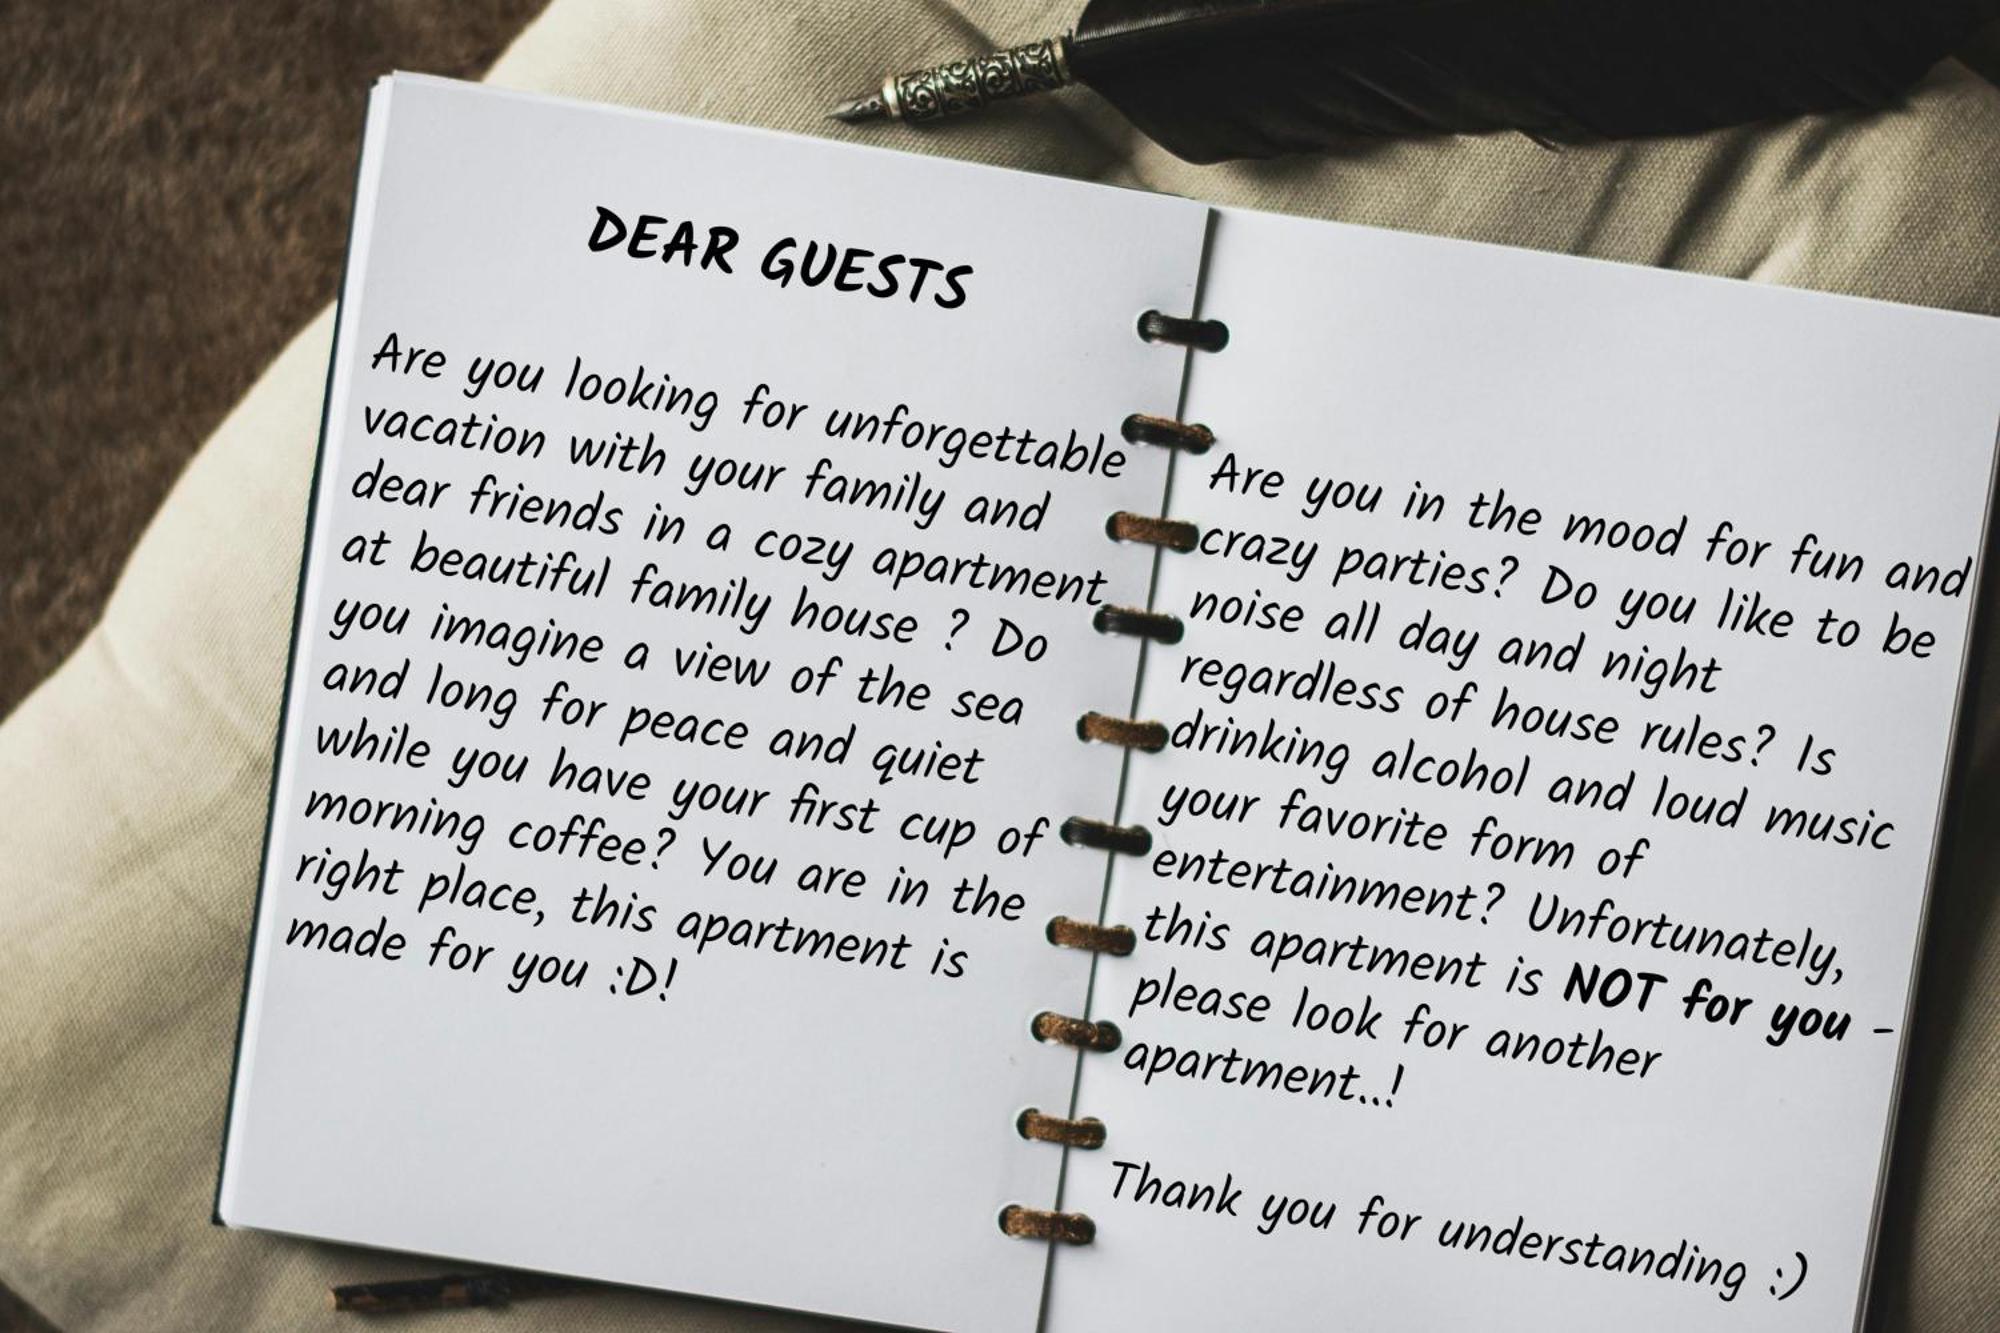 DEAR GUESTS
Are you looking for unforgettable
vacation with your family and
dear friends in a cozy apartment
at beautiful family house ? Do
you imagine a view of the sea
and long for peace and quiet
while you have your first cup of
morning coffee? You are in the
right place, this apartment is
made for you :D!
Are you in the mood for fun and
crazy parties? Do you like to be
noise all day and night
regardless of house rules? Is
drinking alcohol and loud music
your favorite form of
entertainment? Unfortunately,
this apartment is NOT for you -
please look for another
apartment..!
Thank you for understanding :)